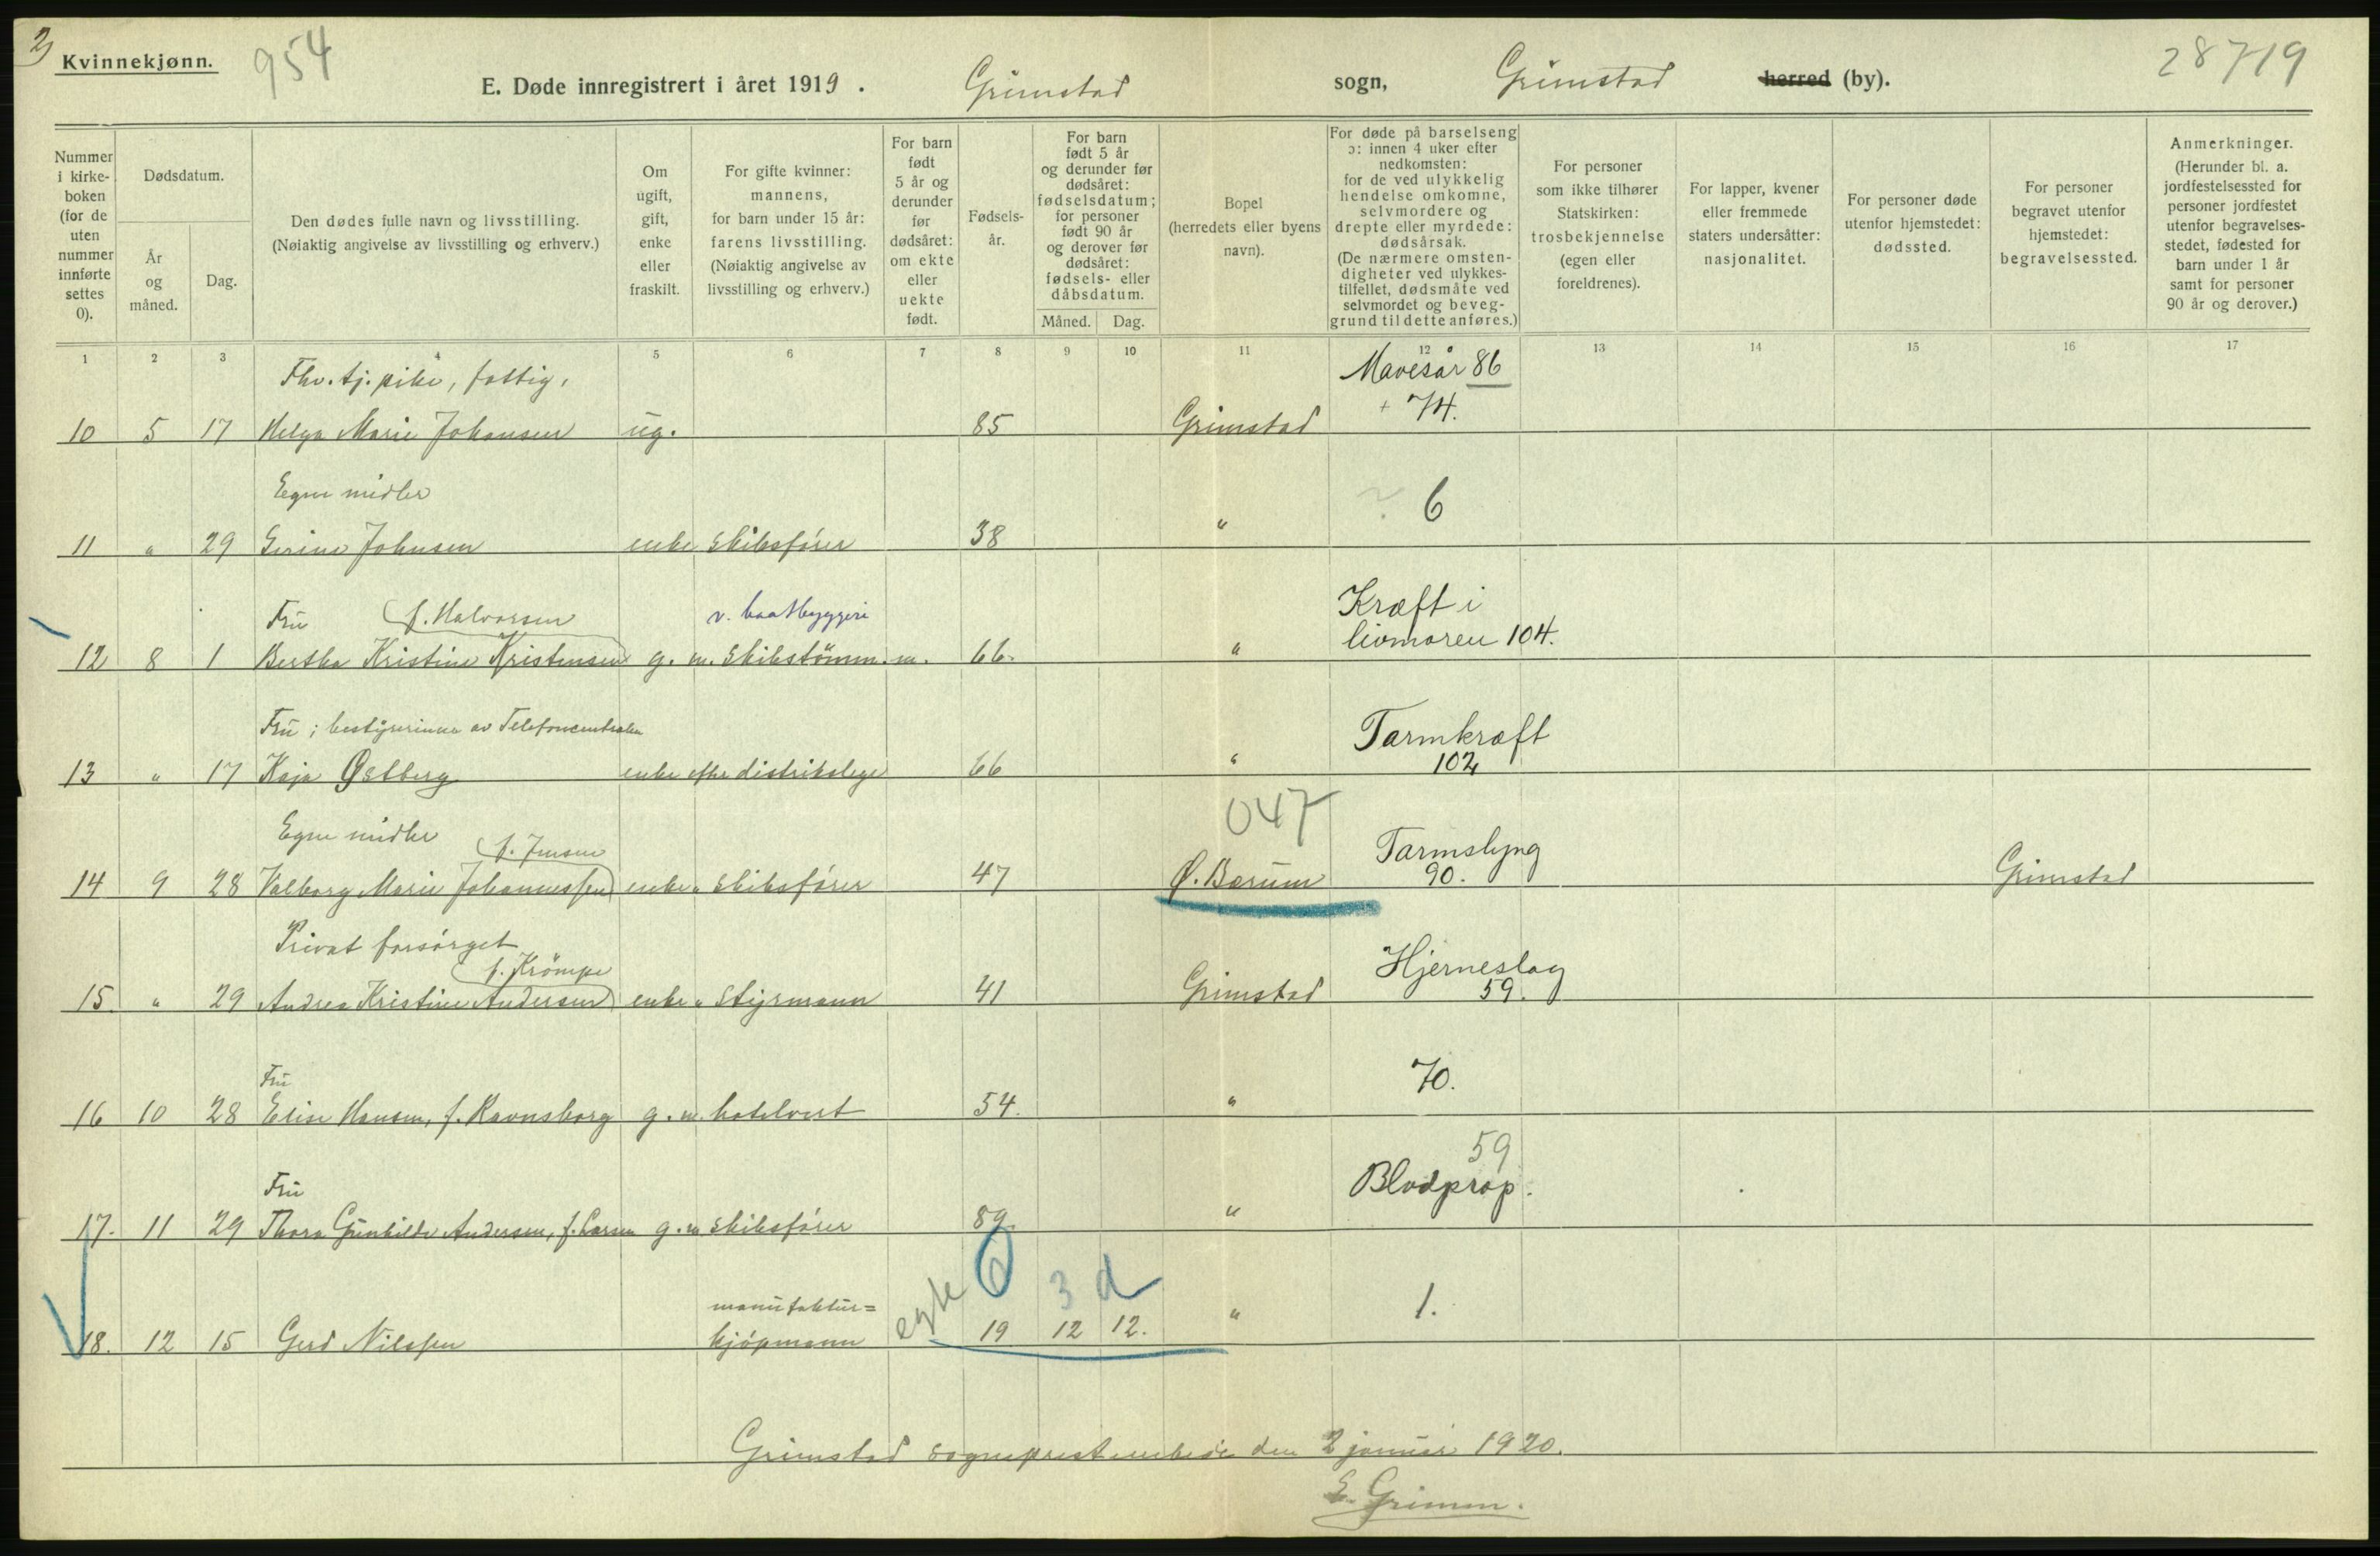 2)
Kvinnekjønn.
954
E. Døde innregistrert i året 1919.
Grimstad
sogn,
Grimstad
herred (by).
28719
Nummer i kirke- boken (for de uten nummer innførte settes 0).
Dødsdatum.
År og måned.
Dag.
Den dødes fulle navn og livsstilling.
(Nøiaktig angivelse av livsstilling og erhverv.)
Om ugift, gift, enke eller fraskilt.
For gifte kvinner: mannens, for barn under 15 år: farens livsstilling.
(Nøiaktig angivelse av livsstilling og erhverv.)
For barn født 5 år og derunder før dødsåret: om ekte eller uekte født.
Fødsels- år.
For barn født 5 år og derunder før dødsåret: fødselsdatum; for personer født 90 år og derover før dødsåret: fødsels- eller dåbsdatum.
Måned.
Dag.
Bopel
(herredets eller byens navn).
For døde på barselseng ɔ: innen 4 uker efter nedkomsten: for de ved ulykkelig hendelse omkomne, selvmordere og drepte eller myrdede: dødsårsak.
(De nærmere omsten- digheter ved ulykkes- tilfellet, dødsmåte ved selvmordet og beveg- grund til dette anføres.)
For personer som ikke tilhører Statskirken: trosbekjennelse (egen eller foreldrenes).
For lapper, kvener eller fremmede staters undersåtter: nasjonalitet.
For personer døde utenfor hjemstedet: dødssted.
For personer begravet utenfor hjemstedet: begravelsessted.
Anmerkninger.
(Herunder bl. a. jordfestelsessted for personer jordfestet utenfor begravelses- stedet, fødested for barn under 1 år samt for personer 90 år og derover.)
1 2 3 4 5 6 7 8 9 10 11 12 13 14 15 16 17
Fhv. tj. pike, fattig, Mavesår 86
+ 74.
10 5 17 Helga Marie Johansen ug. 85 Grimstad
Egne midler ? 6
11 " 29 Serine Johnsen enke skibsfører 38 "
Fru f. Halvorsen v. baatbyggeri Kræft i
livmoren 104.
12 8 1 Bertha Kristine Kristensen g. m. skibstømm. m. 66 "
Fru; bestyrerinne av Telefoncentralen Tarmkræft
13 " 17 Kaja Østberg enke efter distriktslege 66 " 102
047
Egne midler f. Jensen Tarmslyng
14 9 28 Valborg Marie Johannessen enke " skibsfører 47 Ø. Bærum 90. Grimstad
Privat forsørget
f. Krömpe Hjerneslag
15. " 29 Andrea Kristine Andersen enke " styrmann 41 Grimstad 59.
Fru 70.
16 10 28 Elise Hansen, f. Ravnsborg g. m. hotelvert 54. "
59
Fru Blodprop.
17. 11 29 Thora Gunhilde Andersen, f. Larsen g. m. skibsfører 89 "
manufaktur= egte 0 3 d 1.
18. 12 15 Gerd Nilssen kjøpmann 19 12 12. "
Grimstad sogneprestembede den 2 januar 1920.
E. Grimm.